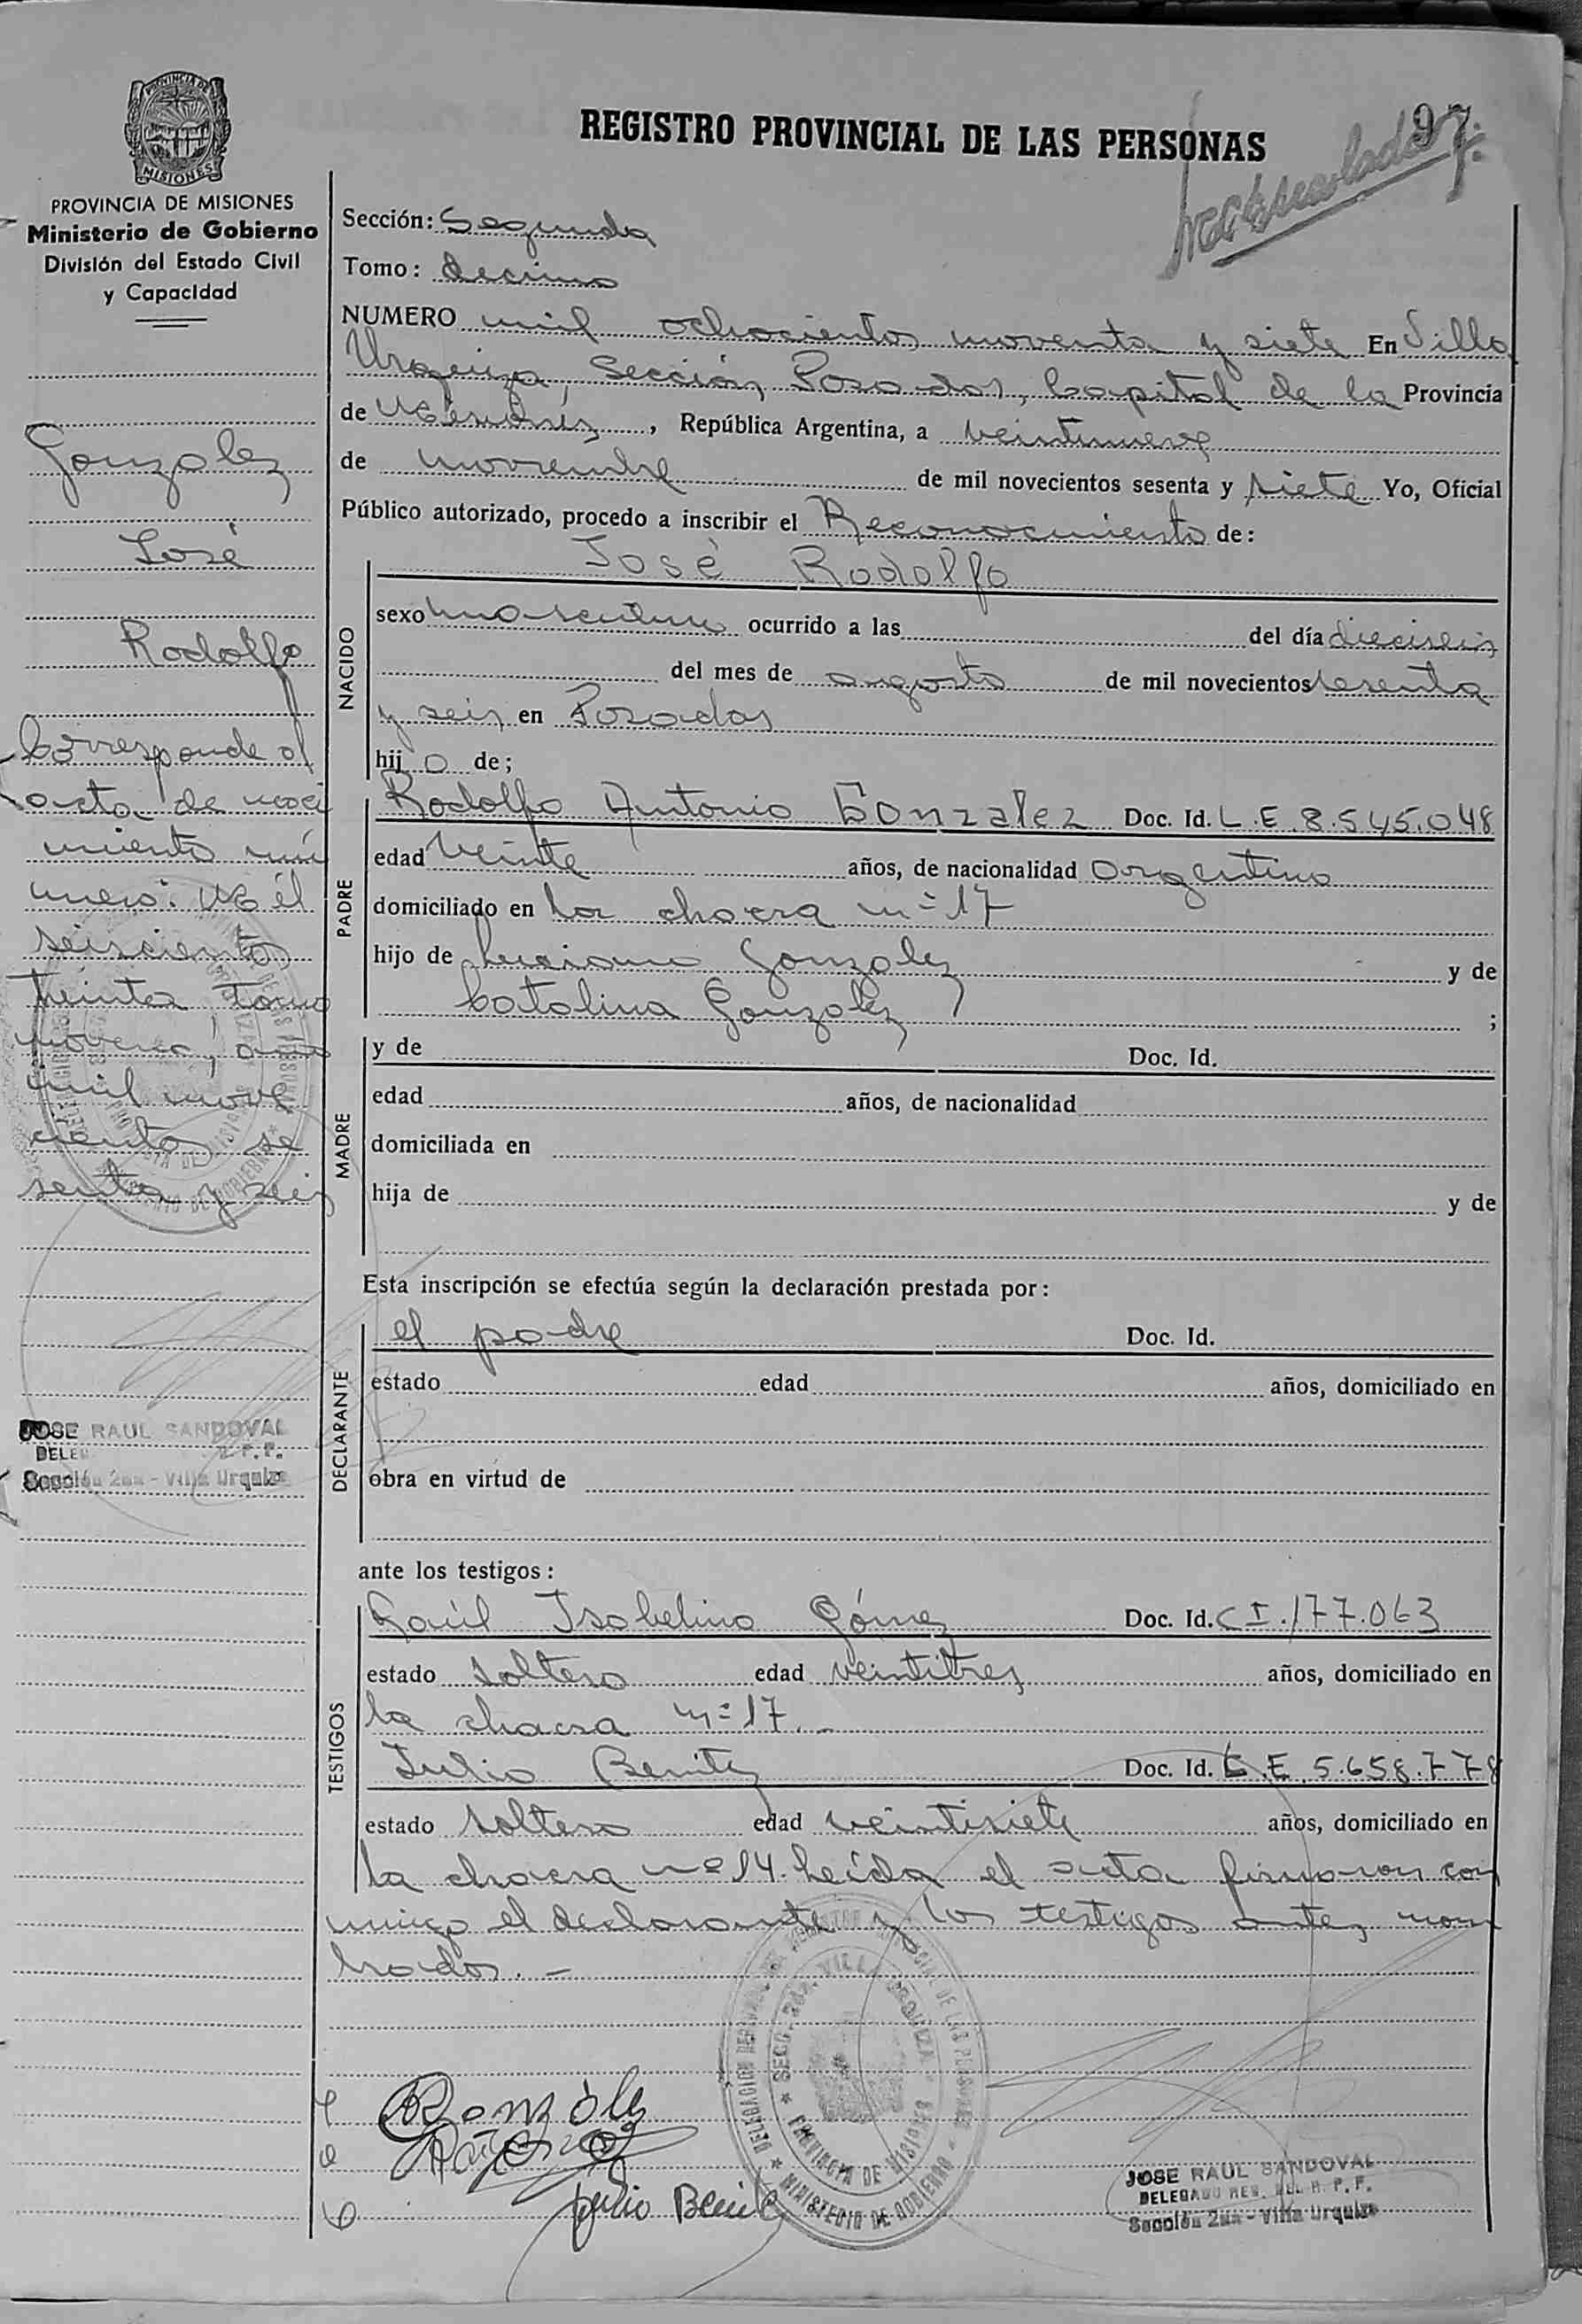 97
REGISTRO PROVINCIAL DE LAS PERSONAS
PROVINCIA DE MISIONES
Ministerio de Gobierno
División del Estado Civil
y Capacidad
Gonzalez
José
Rodolfo
Corresponde al
acta de naci
miento nú
mero: Mil
seiscientos
treinta, tomo
noveno, año
mil nove
cientos se
senta y seis
JOSE RAUL SANDOVAL
Sección 2da - Villa Urquiza
Sección: Segunda
Tomo: decimo
NUMERO mil ochocientos noventa y siete En Villa
Urquiza, Sección, Posadas, Capital de la Provincia
de Misiones, República Argentina, a veintinueve
de noviembre de mil novecientos sesenta y siete Yo, Oficial
Público autorizado, procedo a inscribir el Reconocimiento de:
José Rodolfo
NACIDO
sexo masculino ocurrido a las del día dieciseis
del mes de agosto de mil novecientos sesenta
y seis en Posadas
hijo de;
PADRE
Rodolfo Antonio Gonzalez Doc. Id. L.E.8.545.048
edad veinte años, de nacionalidad argentino
domiciliado en la chacra nº 17
hijo de Luciano Gonzalez y de
Catalina Gonzalez ;
MADRE
y de Doc. Id.
edad años, de nacionalidad
domiciliada en
hija de y de
Esta inscripción se efectúa según la declaración prestada por:
DECLARANTE
el padre Doc. Id.
estado edad años, domiciliado en
obra en virtud de
ante los testigos:
TESTIGOS
Raúl Isabelino Gómez Doc. Id. C I. 177.063
estado soltero edad veintitres años, domiciliado en
la chacra nº 17. -
Julio Benitez Doc. Id. L.E. 5.658.778
estado soltero edad veintisiete años, domiciliado en
la chacra nº 14. Leída el acta firmaron con
migo el declarante y los testigos antes nom
brados. -
Gonzàlez
Julio Benitez
SECC. 2DA. VILLA URQUIZA
PROVINCIA DE MISIONES
MINISTERIO DE GOBIERNO
JOSE RAUL SANDOVAL
DELEGADO REG. DEL R. P. P.
Sección 2da - Villa Urquiza